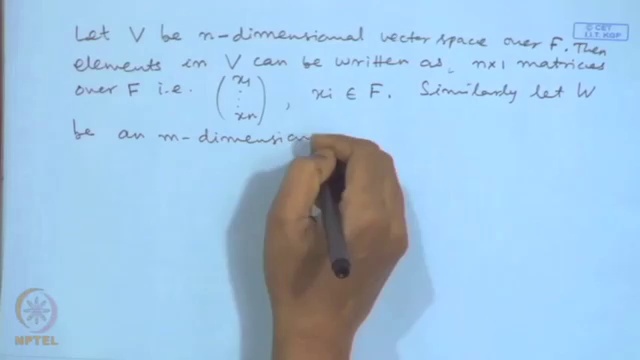 © CET
I.I.T. KGP
Let V be n-dimensional vector space over F. Then
elements in V can be written as, n×1 matrices
over F i.e. (x1 ⋮ xn), xi ∈ F. Similarly let W
be an m-dimension
NPTEL